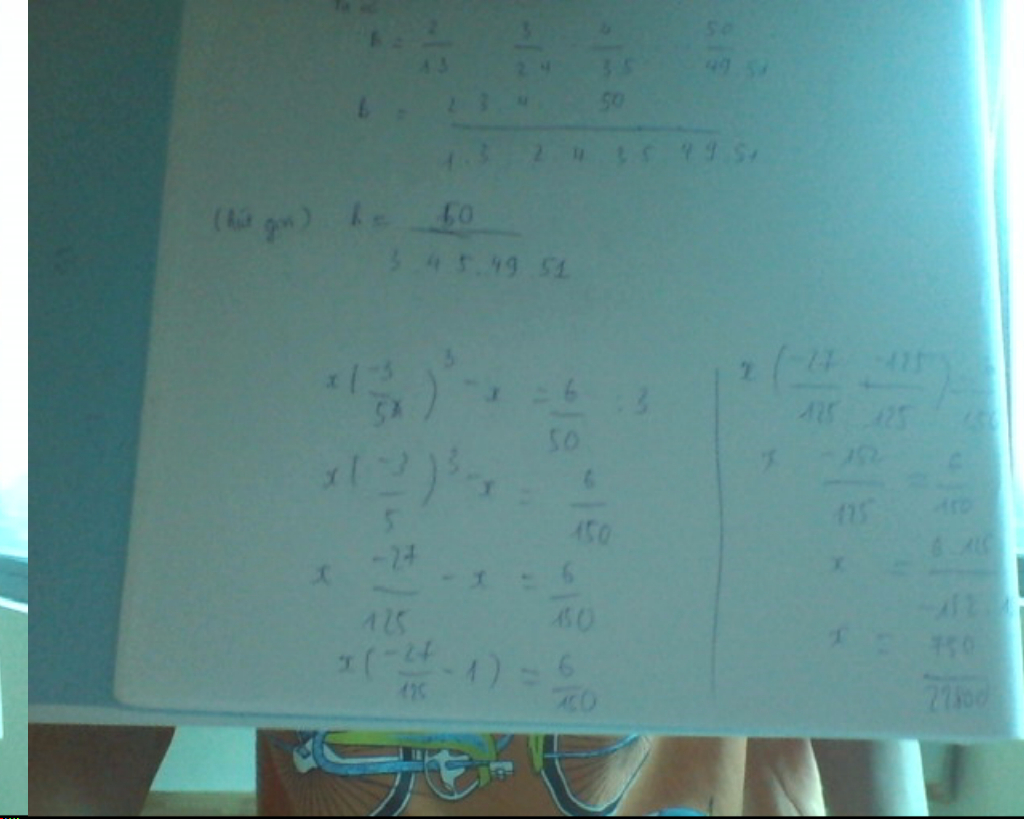 B = 2/1 3 3/2 4 4/3 5 50/49.51
B = 2 3 4 50 / 1.3 2 4 3 5 49.51
(Rút gọn) B = 50 / 3 4 5.49 51
x(-3/5)^3 - x = 6/50 : 3
x(-3/5)^3 - x = 6/150
x -27/125 - x = 6/150
x(-27/125 - 1) = 6/150
x(-27/125 + -125/125)
x -152/125 = 6/150
x = 6.125/-152
x = 750/22800